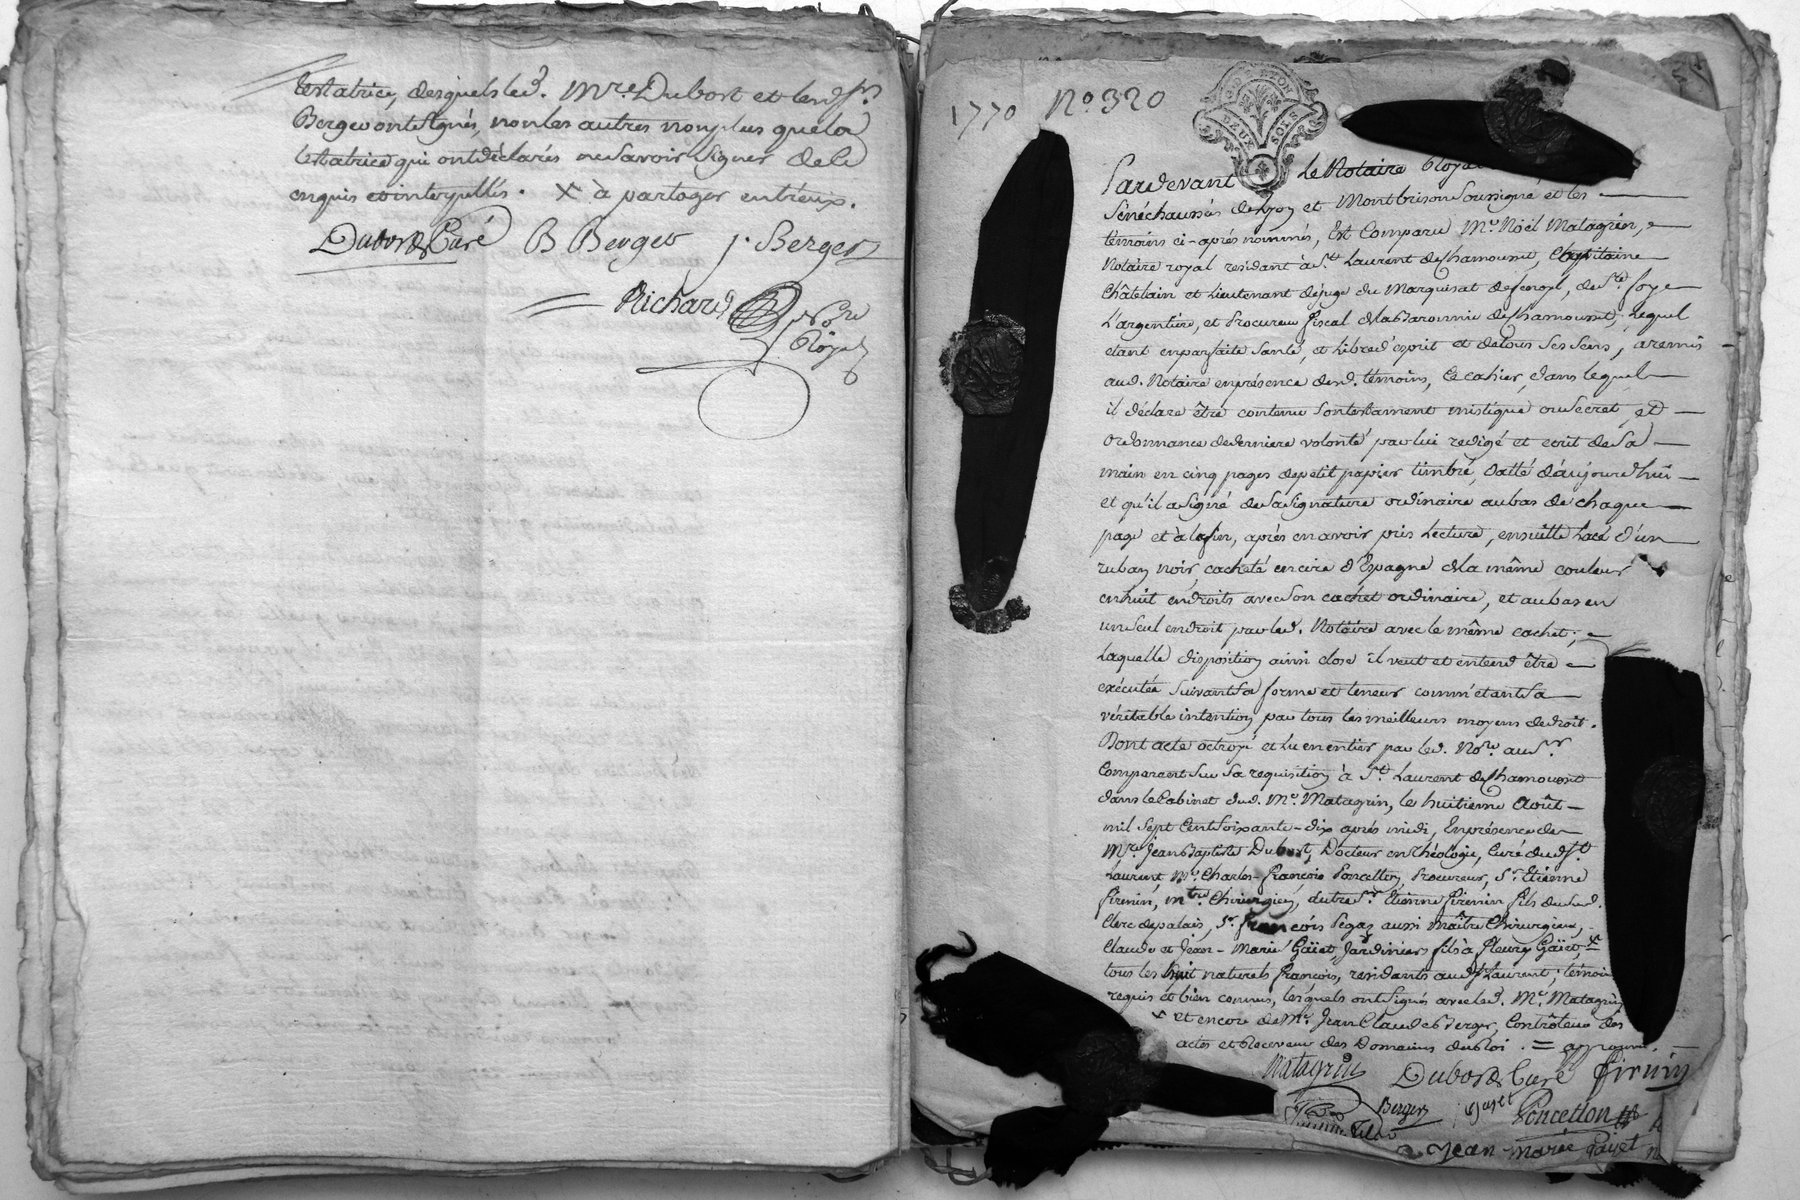 testatrice, desquels led. Mre. Dubost et lesd. Srs
Berger ont signés, non les autres non plus que la
testatrice qui ont déclarés ne savoir signer de ce
enquis et interpellés. X à partager entr'eux.
Dubost Curé B Berger J. Berger
Richard Nore
Royal
1770 No. 320
G. D. LYON
DEUX SOLS
Pardevant le Notaire Royal
Sénéchaussés de Lyon et Montbrison soussigné et les
témoins ci-après nommés, Est Comparu Me. Noël Matagrin,
Notaire royal residant à St. Laurent de Chamousset, Capitaine
Châtelain et Lieutenant de juge du Marquisat de, de Ste. foye
L'argentiere, et Procureur fiscal de la Baronnie de Chamousset; Lequel
etant en parfaite santé, et libre d'esprit et de tous ses sens, a remis
aud. Notaire en présence desd. témoins, Ce cahier, dans lequel
il déclare être contenu son testament mistique ou secret, et
ordonnance de derniere volonté par lui redigé et ecrit de sa
main en cinq pages de petit papier timbré, datté d'aujourd'hui
et qu'il a signé de sa signature ordinaire au bas de chaque
page et à la fin, après en avoir pris lecture, ensuitte Lacé d'un
ruban noir cacheté en cire d'Espagne de la même couleur
en huit endroits avec son cachet ordinaire, et au bas en
un seul endroit par led. Notaire avec le même cachet;
Laquelle disposition ainsi close il veut et entend être
exécutée suivant sa forme et teneur comm'etant sa
véritable intention par tous les meilleurs moyens de droit.
Dont acte octroyé et lu en entier par led. Nore. au Sr.
Comparant sur sa requisition à St. Laurent de Chamousset
dans le Cabinet dud. Me. Matagrin, le huitieme Août
mil sept Cent soixante-dix après midi, En présence de
Mre. Jean Baptiste Dubost, Docteur en théologie, Curé dud. St.
Laurent Me. Charles-françois Poncetton, Procureur, Sr. Etienne
firmin, mtre. Chirurgien, autre Sr. Etienne firmin fils dud.
Clerc de palais, Sr. françois Pégaz aussi Maître Chirurgien,
Claude et Jean-Marie Gaiet, Jardiniers fils à fleury Gaiet, X
tous les huit naturels françois, residants aud. St Laurent; témoins
requis et bien connus, lesquels ont signés avec led. Me. Matagrin
X et encore de Me. Jean Claude Berger, Contrôleur des
actes et Receveur des Domaines du Roi. = approuvé.
Matagrin Dubost Curé firmin
Berger Gayet Poncetton
firmin fils
Jean marie Gaiet